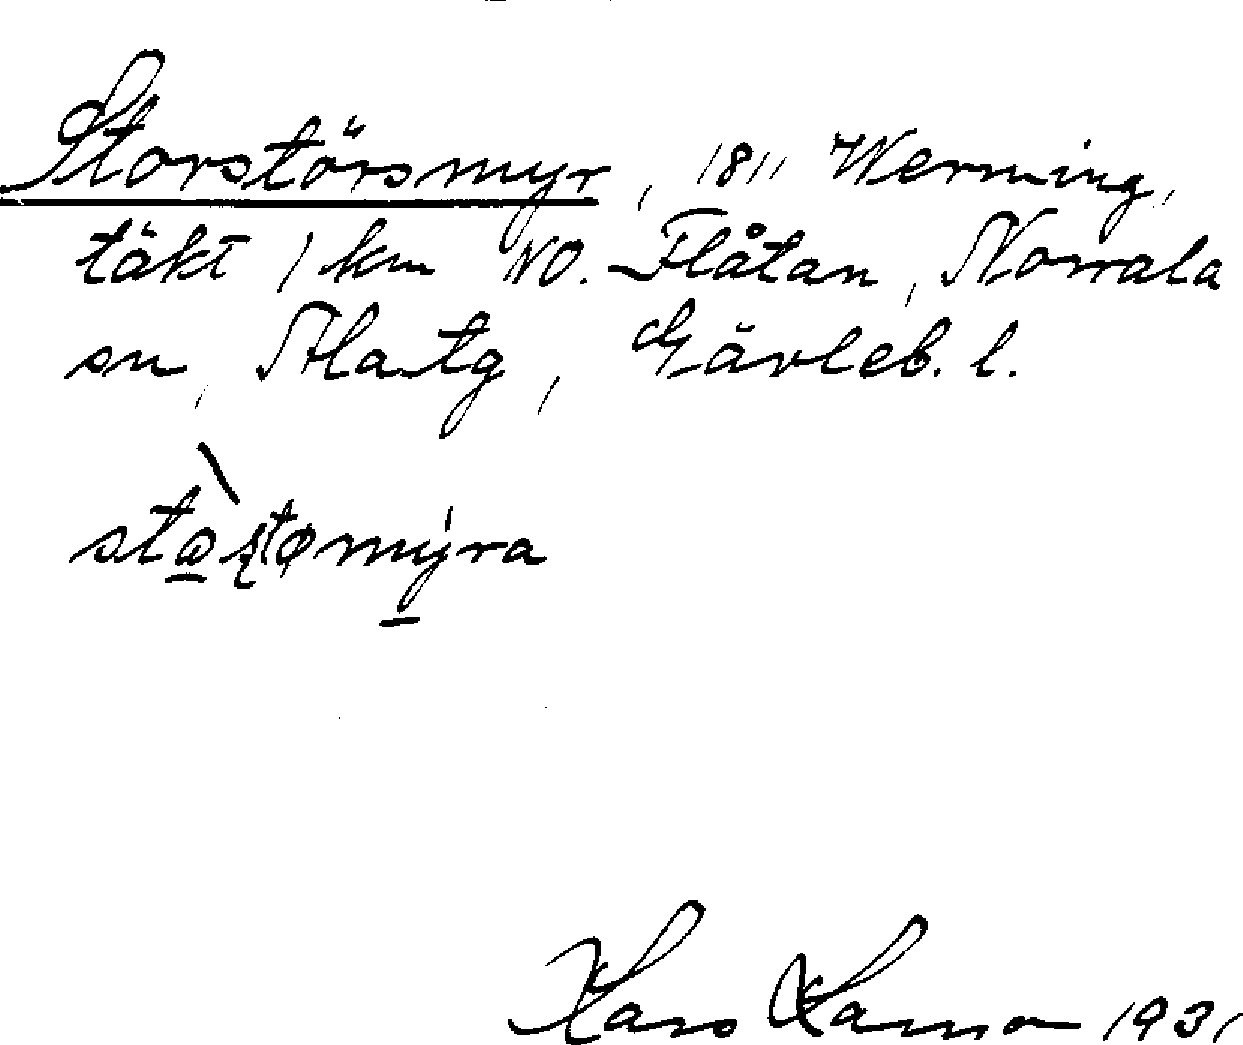 Storstörsmyr, 1811 Werming,
täkt 1 km NO. Flåtan, Norrala
sn, Ala tg, Gävleb. l.
Lars Larsson 1931